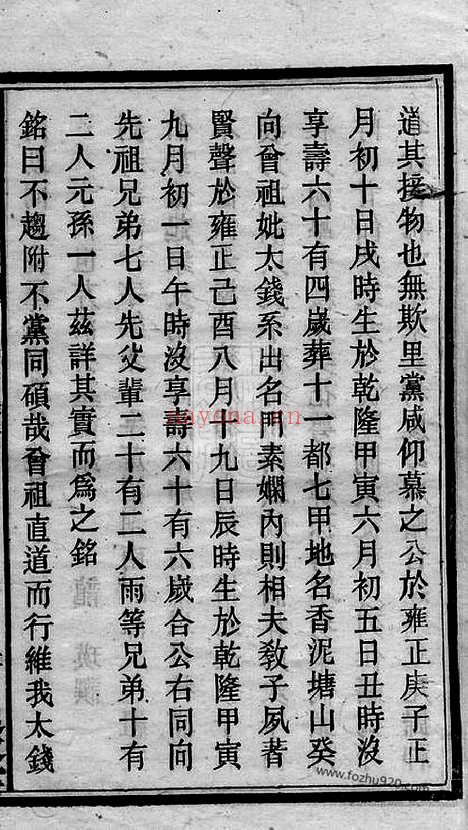 道其接物也無欺里黨咸仰慕之公於雍正庚子正
月初十日戌時生於乾隆甲寅六月初五日丑時沒
享壽六十有四歲葬十一都七甲地名香泥塘山癸
向曾祖妣太錢系出名門素嫺內則相夫敎子夙著
賢聲於雍正己酉八月十九日辰時生於乾隆甲寅
九月初一日午時沒享壽六十有六歲合公右同向
先祖兄弟七人先父輩二十有二人雨等兄弟十有
二人元孫一人茲詳其實而爲之銘
銘曰不趨附不黨同碩哉曾祖直道而行維我太錢
www.fozhu920.com